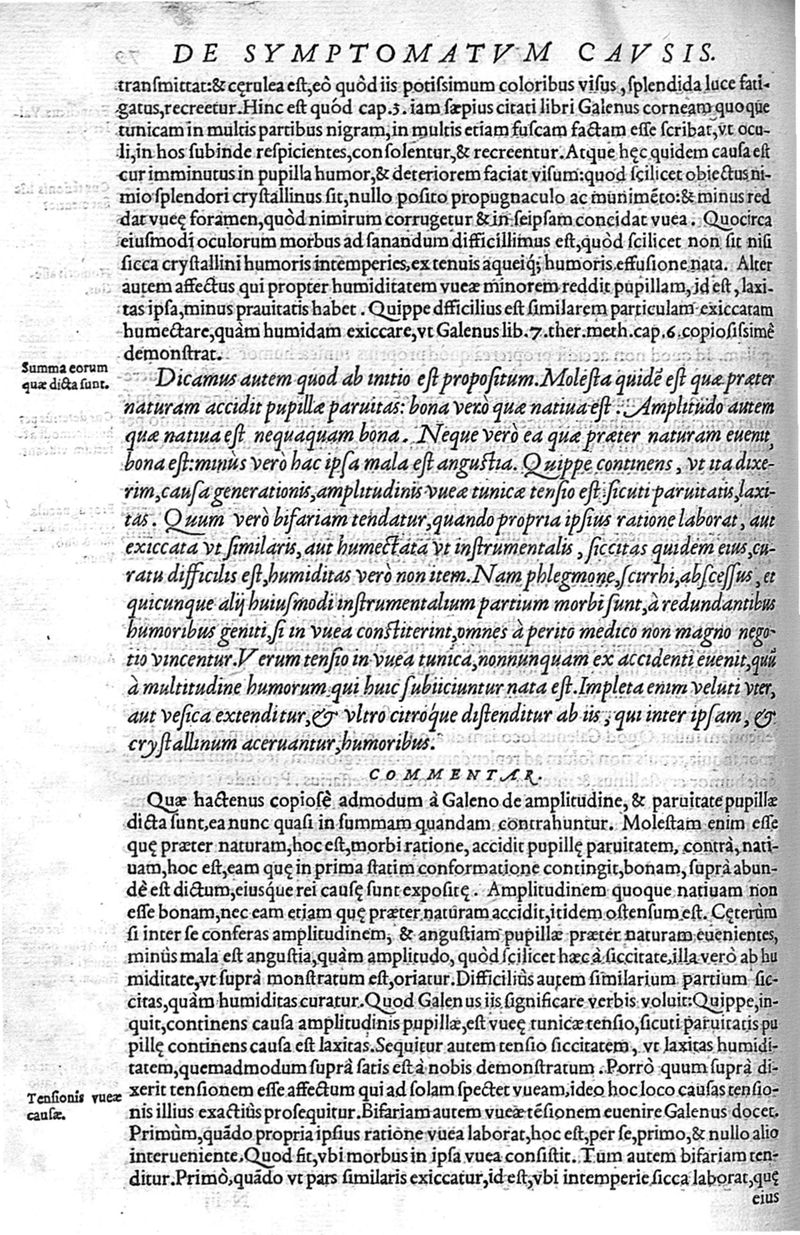 DE SYMPTOMATVM CAVSIS.
transmittat:& cęrulea est, eò quòd iis potissimum coloribus visus, splendida luce fati-
gatus, recreetur. Hinc est quód cap. 3. iam sæpius citati libri Galenus corneam quoque
tunicam in multis partibus nigram, in multis etiam fuscam factam esse scribat, vt ocu-
li, in hos subinde respicientes, consolentur, & recreentur. Atque hęc quidem causa est
cur imminutus in pupilla humor, & deteriorem faciat visum: quod scilicet obiectus ni-
mio splendori crystallinus sit, nullo posito propugnaculo ac munimẽto: & minus red
dat vueę foramen, quòd nimirum corrugetur & in seipsam concidat vuea. Quocirca
eiusmodi oculorum morbus ad sanandum difficillimus est, quòd scilicet non sit nisi
sicca crystallini humoris intemperies, ex tenuis aqueiq; humoris effusione nata. Alter
autem affectus qui propter humiditatem vueæ minorem reddit pupillam, id est, laxi-
tas ipsa, minus prauitatis habet. Quippe dfficilius est similarem particulam exiccatam
humectare, quàm humidam exiccare, vt Galenus lib. 7. ther. meth. cap. 6. copiosissimè
demonstrat.
Summa eorum
quæ dicta sunt.
Dicamus autem quod ab initio est propositum. Molesta quidẽ est quæ præter
naturam accidit pupillæ paruitas: bona verò quæ natiua est: Amplitudo autem
quæ natiua est nequaquam bona. Neque verò ea quæ præter naturam euenit,
bona est: minùs verò hac ipsa mala est angustia. Quippe continens, vt ita dixe-
rim, causa generationis, amplitudinis vueæ tunicæ tensio est: sicuti paruitatis, laxi-
tas. Quum verò bifariam tendatur, quando propria ipsius ratione laborat, aut
exiccata vt similaris, aut humectata vt instrumentalis, siccitas quidem eius, cu-
ratu difficilis est, humiditas verò non item. Nam phlegmone, scirrhi, abscessus, et
quicunque alij huiusmodi instrumentalium partium morbi sunt, à redundantibus
humoribus geniti, si in vuea constiterint, omnes à perito medico non magno nego-
tio vincentur. Verum tensio in vuea tunica, nonnunquam ex accidenti euenit, quũ
à multitudine humorum qui huic subiiciuntur nata est. Impleta enim veluti vter,
aut vesica extenditur, & vltro citróque distenditur ab iis, qui inter ipsam, &
crystallinum aceruantur, humoribus.
COMMENTAR.
Quæ hactenus copiosè admodum à Galeno de amplitudine, & paruitate pupillæ
dicta sunt, ea nunc quasi in summam quandam contrahuntur. Molestam enim esse
quę præter naturam, hoc est, morbi ratione, accidit pupillę paruitatem, contrà, nati-
uam, hoc est, eam quę in prima statim conformatione contingit, bonam, suprà abun-
dè est dictum, eiusque rei causę sunt expositę. Amplitudinem quoque natiuam non
esse bonam, nec eam etiam quę præter naturam accidit, itidem ostensum est. Cęterùm
si inter se conferas amplitudinem, & angustiam pupillæ præter naturam euenientes,
minùs mala est angustia, quàm amplitudo, quòd scilicet hæc à siccitate, illa verò ab hu
miditate, vt suprà monstratum est, oriatur. Difficiliùs autem similarium partium sic-
citas, quàm humiditas curatur. Quod Galenus iis significare verbis voluit: Quippe, in-
quit, continens causa amplitudinis pupillæ, est vueę tunicæ tensio, sicuti paruitatis pu
pillę continens causa est laxitas. Sequitur autem tensio siccitatem, vt laxitas humidi-
tatem, quemadmodum suprà satis est à nobis demonstratum. Porrò quum suprà di-
xerit tensionem esse affectum qui ad solam spectet vueam, ideo hoc loco causas tensio-
Tensionis vueæ
causæ.
nis illius exactiùs prosequitur. Bifariam autem vueæ tẽsionem euenire Galenus docet.
Primùm, quãdo propria ipsius ratione vuea laborat, hoc est, per se, primo, & nullo alio
interueniente. Quod fit, vbi morbus in ipsa vuea consistit. Tũm autem bifariam ten-
ditur. Primò, quãdo vt pars similaris exiccatur, id est, vbi intemperie sicca laborat, quę
eius